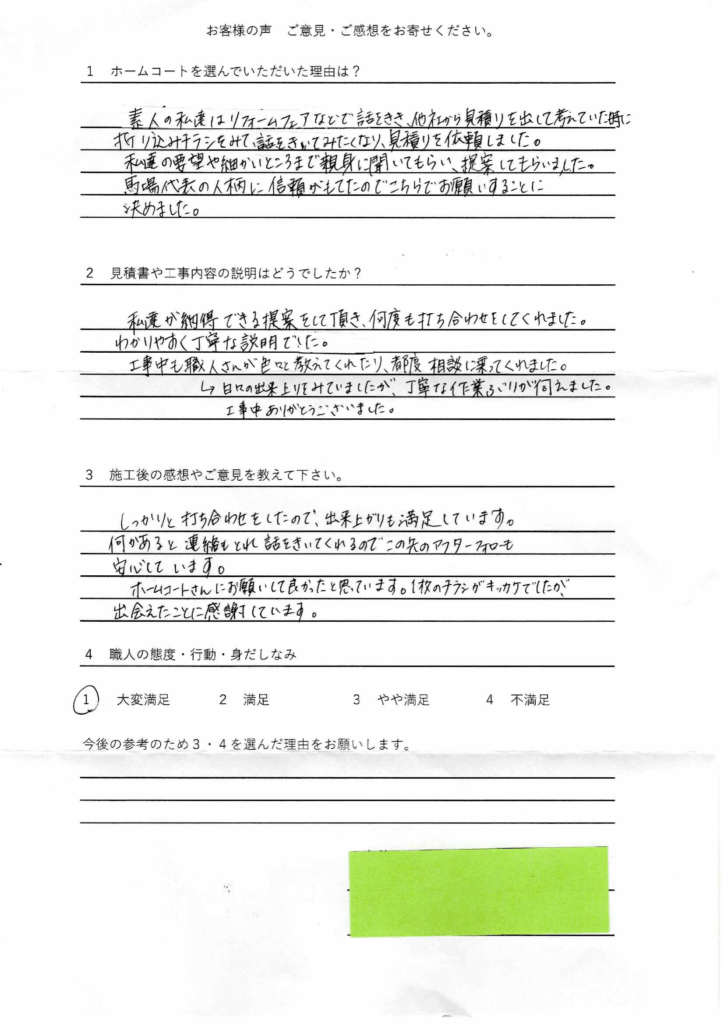 お客様の声　ご意見・ご感想をお寄せください。
1　ホームコートを選んでいただいた理由は？
素人の私達はリフォームフェアなどで話をきき、他社から見積りを出して考えていた時に
折り込みチラシをみて、話をきいてみたくなり、見積りを依頼しました。
私達の要望や細かいところまで親身に聞いてもらい、提案してもらいました。
馬場代表の人柄に信頼がもてたのでこちらでお願いすることに
決めました。
2　見積書や工事内容の説明はどうでしたか？
私達が納得できる提案をして頂き、何度も打ち合わせをしてくれました。
わかりやすく丁寧な説明でした。
工事中も職人さんが色々と教えてくれたり、都度相談に乗ってくれました。
↳ 日々の出来上りをみていましたが、丁寧な作業ぶりが伺えました。
工事中ありがとうございました。
3　施工後の感想やご意見を教えて下さい。
しっかりと打ち合わせをしたので、出来上がりも満足しています。
何かあると連絡もとれ話をきいてくれるのでこの先のアフターフォローも
安心しています。
ホームコートさんにお願いして良かったと思っています。1枚のチラシがキッカケでしたが、
出会えたことに感謝しています。
4　職人の態度・行動・身だしなみ
1　大変満足　2　満足　3　やや満足　4　不満足
今後の参考のため３・４を選んだ理由をお願いします。